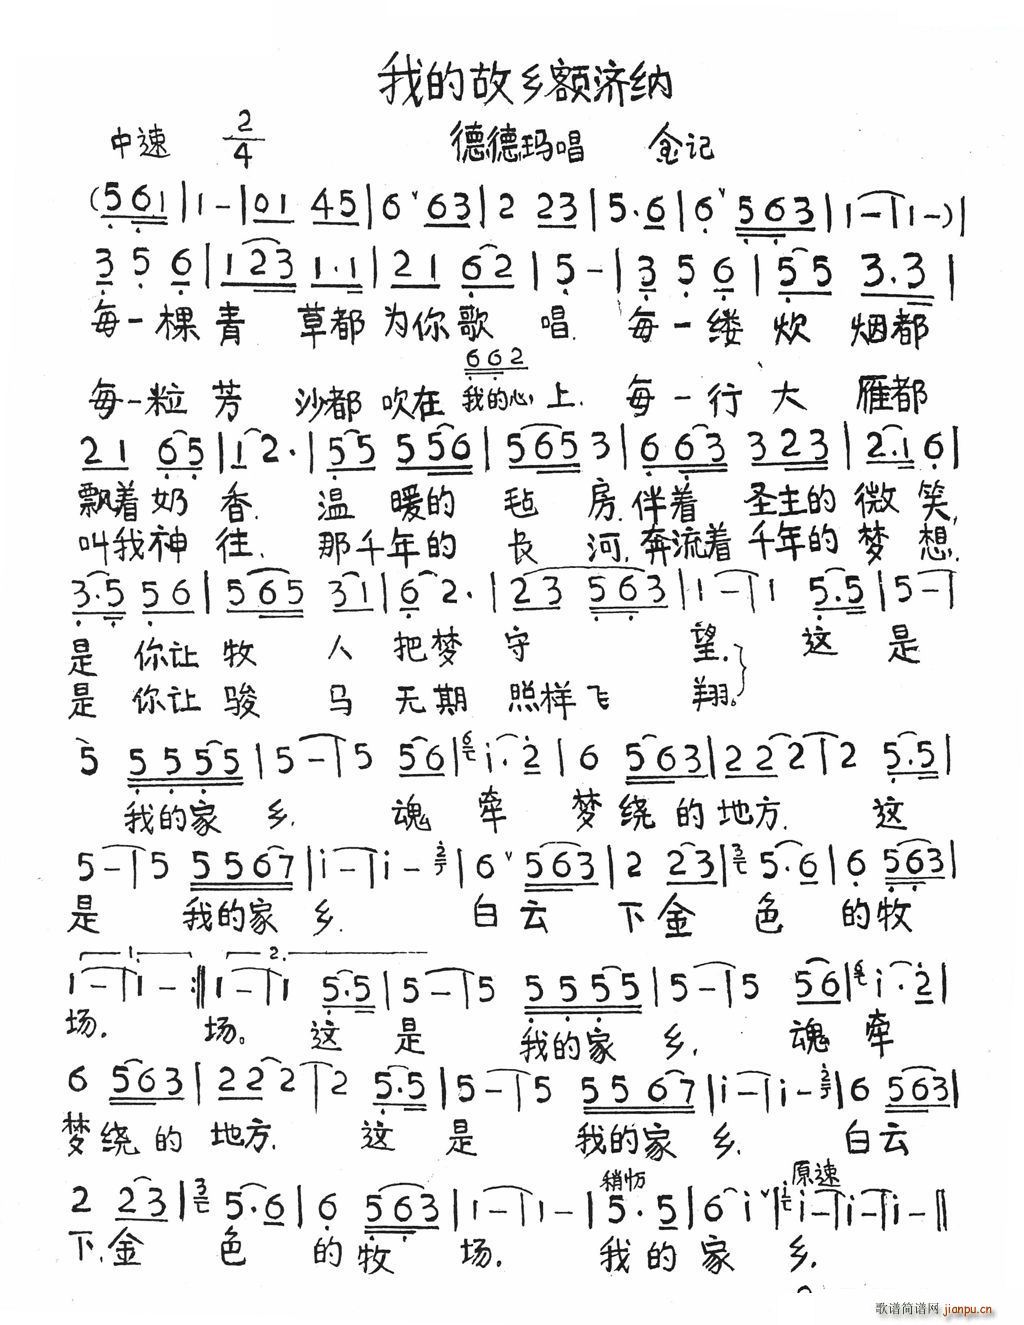 我的故乡额济纳
中速 2/4 德德玛唱 金记
(5 6 1 | 1 - | 0 1 4 5 | 6 ˅ 6 3 | 2 2 3 | 5 . 6 | 6 ˅ 5 6 3 | 1 - | 1 - ) |
3 5 6 | 1 2 3 1 . 1 | 2 1 6 2 | 5 - | 3 5 6 | 5 5 3 . 3 |
每一棵青 草都 为你歌 唱. 每一缕炊 烟都
6 6 2
每一粒芳 沙都 吹在 我的心 上. 每一行大 雁都
2 1 6 5 | 1 2 . | 5 5 5 5 6 | 5 6 5 3 | 6 6 3 3 2 3 | 2 . 1 6 |
飘着奶 香. 温 暖的 毡 房.伴着 圣主的微 笑,
叫我神 往. 那千年的 长 河,奔流着 千年的梦 想.
3 . 5 5 6 | 5 6 5 3 1 | 6 2 . | 2 3 5 6 3 | 1 - | 1 5 . 5 | 5 - |
是 你让 牧 人 把梦 守 望. 这 是
是 你让 骏 马 无期 照样飞 翔。
5 5 5 5 5 | 5 - | 5 5 6 | 6 i . 2 | 6 5 6 3 | 2 2 2 | 2 5 . 5 |
我的家 乡. 魂 牵 梦绕的地方. 这
5 - | 5 5 5 6 7 | i - | i - 2 | 6 ˅ 5 6 3 | 2 2 3 | 3 5 . 6 | 6 5 6 3 |
是 我的家 乡. 白云 下金 色 的牧
1. 2.
1 - | 1 - :‖ 1 - | 1 5 . 5 | 5 - | 5 5 5 5 5 | 5 - | 5 5 6 | 6 i . 2 |
场. 场。 这 是 我的家 乡. 魂 牵
6 5 6 3 | 2 2 2 | 2 5 . 5 | 5 - | 5 5 5 6 7 | i - | i - 2 | 6 5 6 3 |
梦绕的 地方. 这 是 我的家 乡. 白云
稍 原速
2 2 3 | 3 5 . 6 | 6 5 6 3 | 1 - | 1 - | 5 . 5 | 6 i ˅ | i i - | i - | i - ‖
下.金 色 的牧 场. 我的家 乡.
歌谱简谱网 jianpu.cn